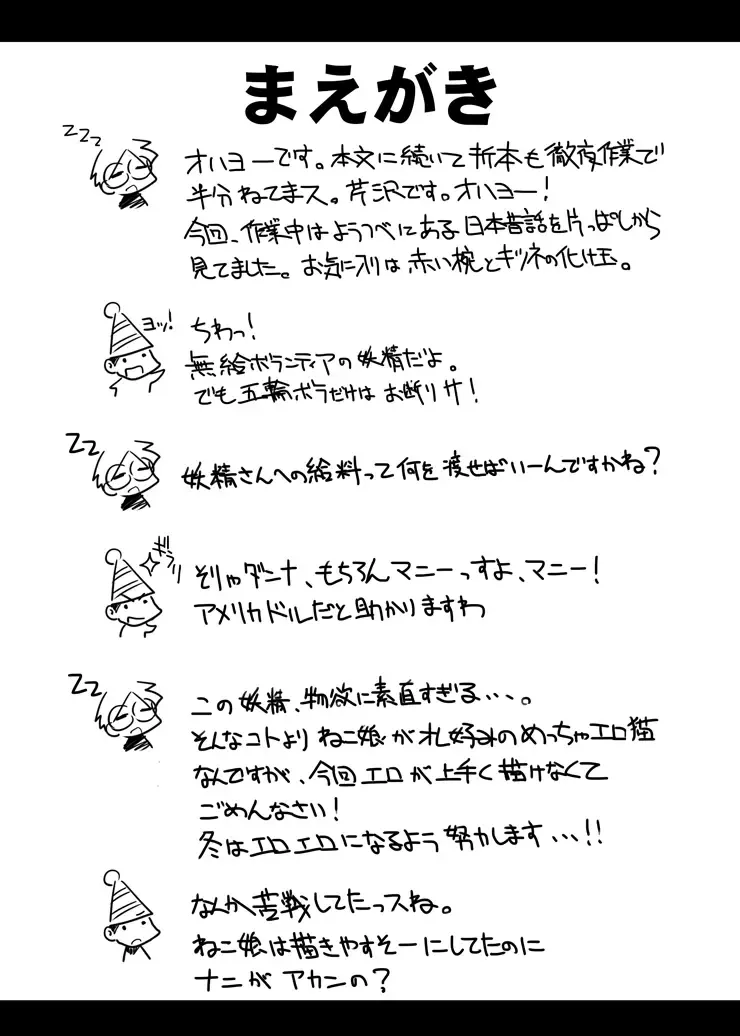 まえがき
zzz
オハヨーです。本文に続いて折本も徹夜作業で
半分ねてまス。芹沢です。オハヨー!
今回、作業中はようつべにある日本昔話を片っぱしから
見てました。お気に入りは赤い椀とキツネの化け玉。
ヨッ!
ちわっ!
無給ボランティアの妖精だよ。
でも五輪ボラだけはお断りサ!
zz
妖精さんへの給料って何を渡せばいーんですかね?
そりゃダンナ、もちろんマニーっすよ、マニー!
アメリカドルだと助かりますわ
zz
この妖精、物欲に素直すぎる・・・。
そんなコトよりねこ娘がオレ好みのめっちゃエロ猫
なんですが、今回エロが上手く描けなくて
ごめんなさい!
冬はエロエロになるよう努力します・・・!!
なんか苦戦してたっスね。
ねこ娘は描きやすそーにしてたのに
ナニがアカンの?